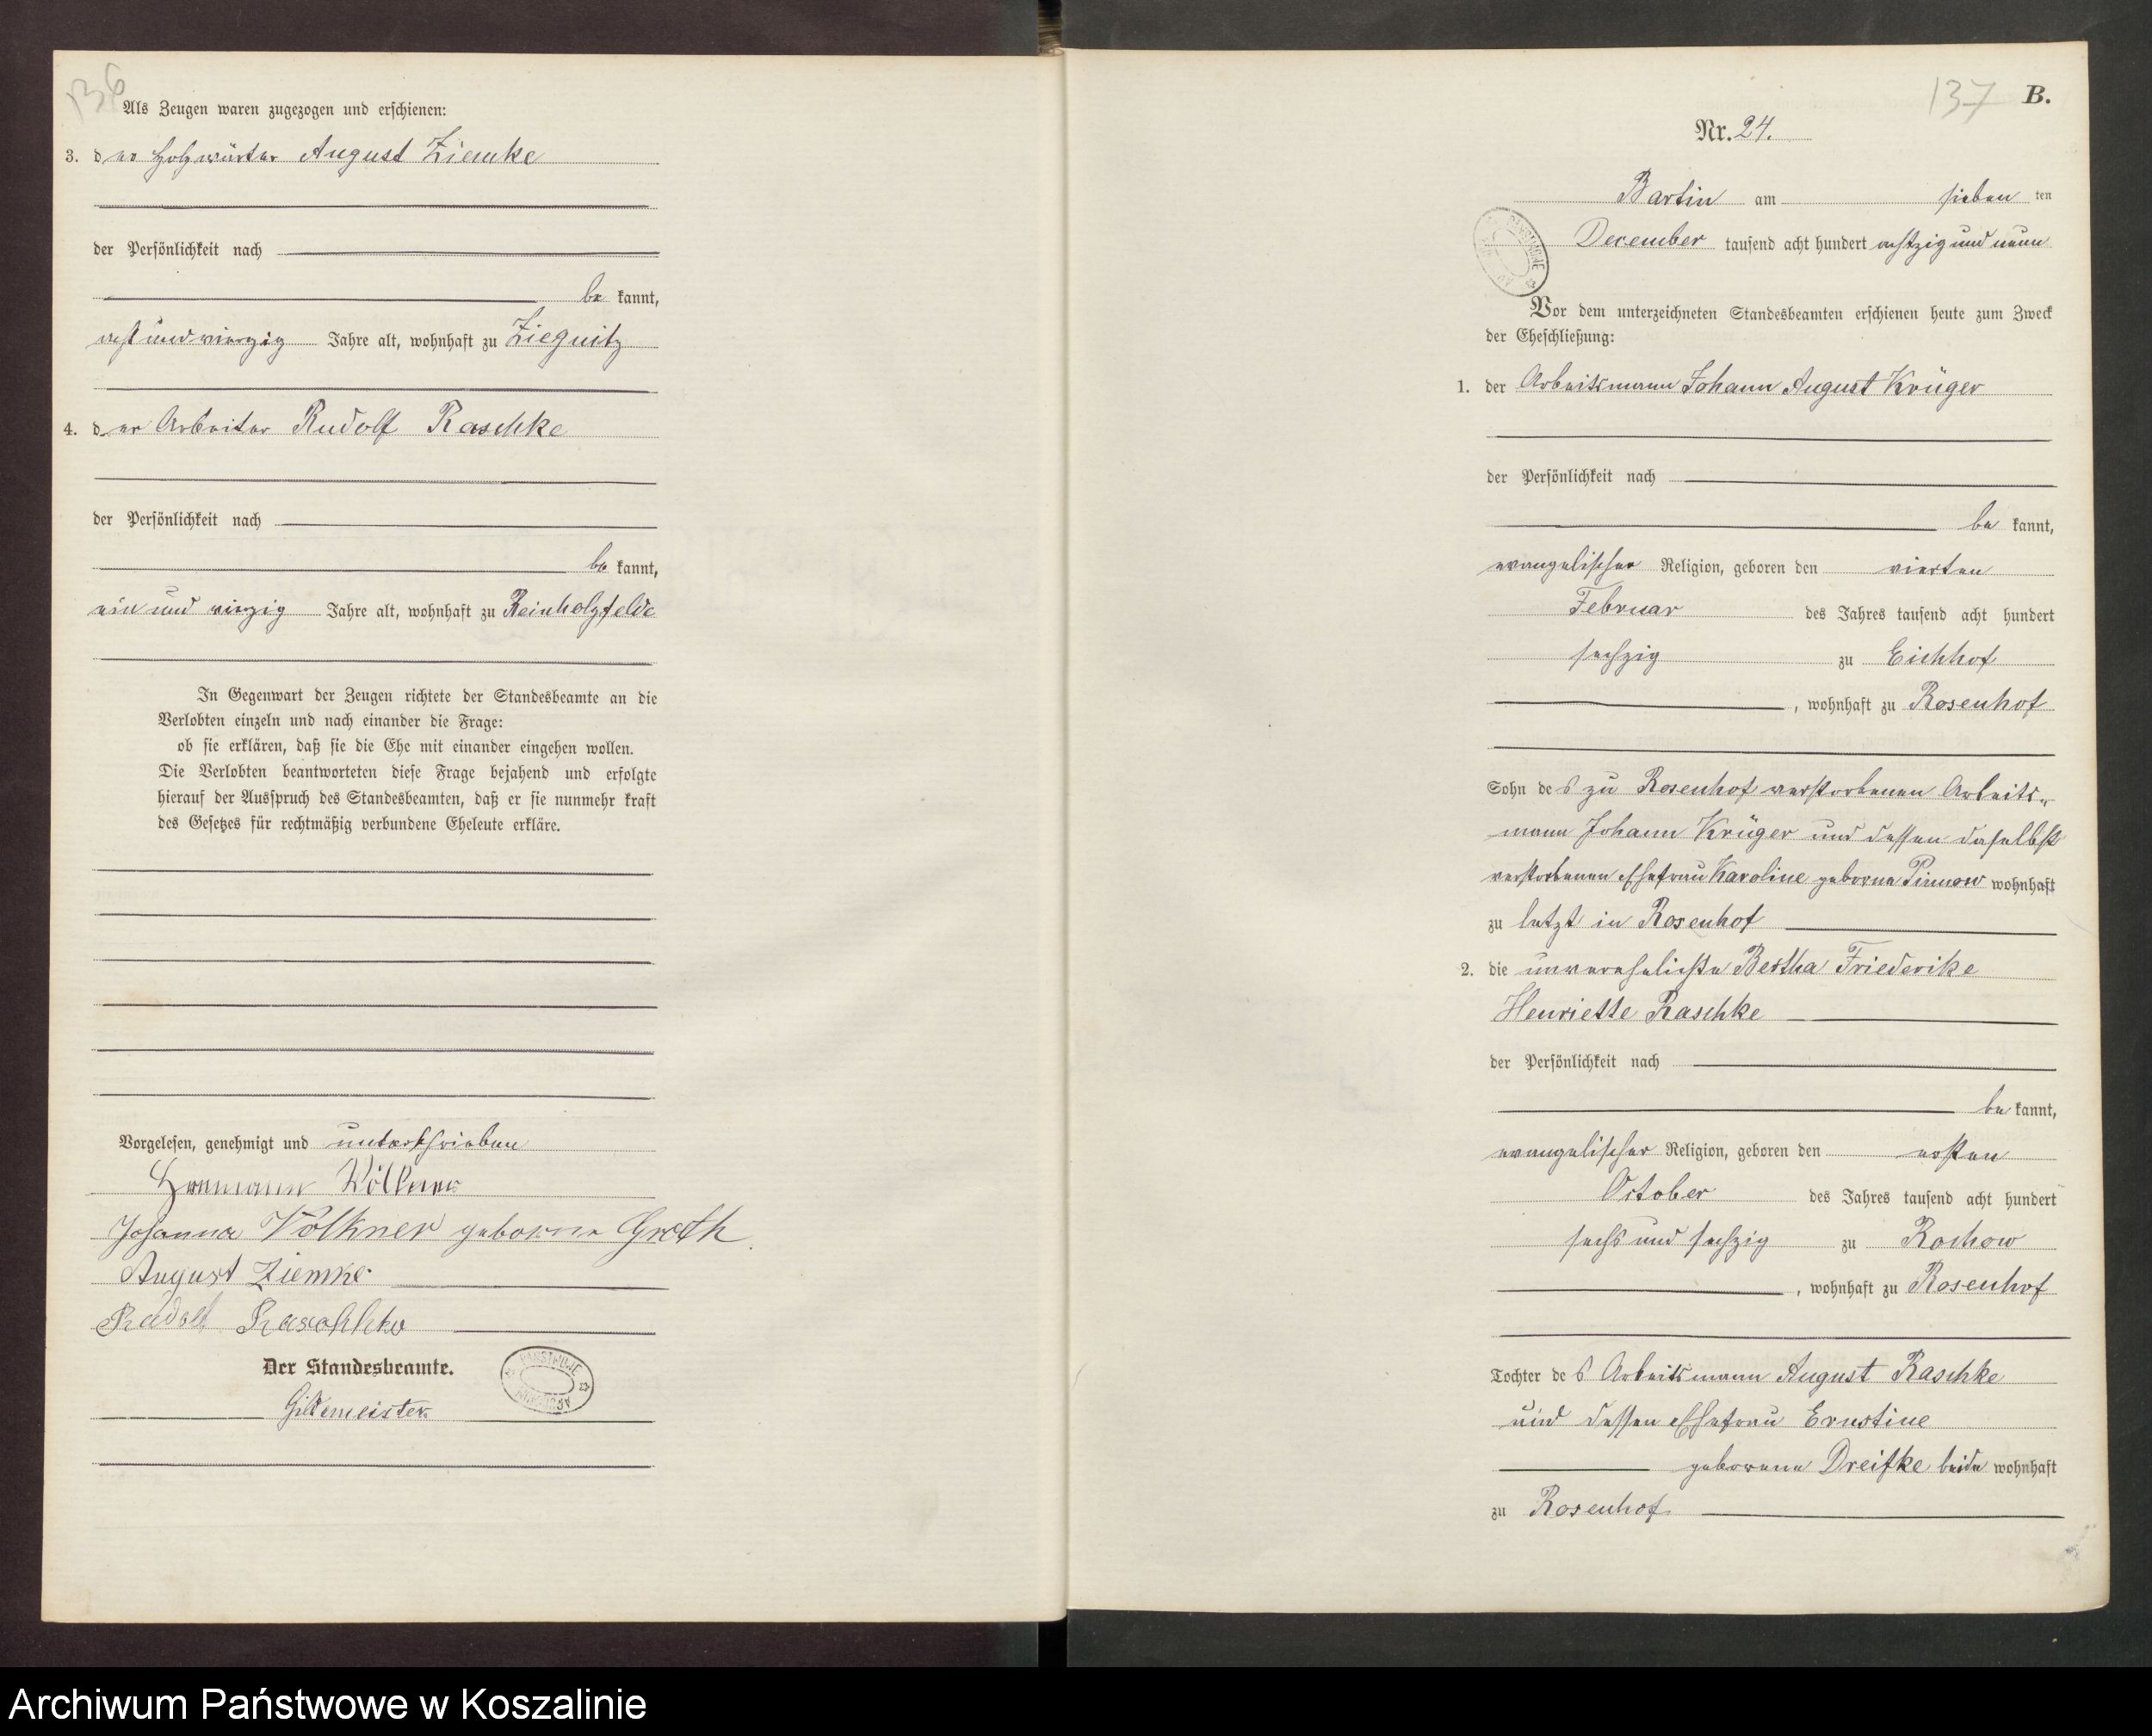 136
Als Zeugen waren zugezogen und erschienen:
3. der Holzwärter August Ziemke
der Persönlichkeit nach
be kannt,
acht und vierzig Jahre alt, wohnhaft zu Ziegnitz
4. der Arbeiter Rudolf Raschke
der Persönlichkeit nach
be kannt,
ein und vierzig Jahre alt, wohnhaft zu Reinholzfelde
In Gegenwart der Zeugen richtete der Standesbeamte an die
Verlobten einzeln und nach einander die Frage:
ob sie erklären, daß sie die Ehe mit einander eingehen wollen.
Die Verlobten beantworteten diese Frage bejahend und erfolgte
hierauf der Ausspruch des Standesbeamten, daß er sie nunmehr kraft
des Gesetzes für rechtmäßig verbundene Eheleute erkläre.
Vorgelesen, genehmigt und unterschrieben
Hermann Völkner
Johanna Völkner geborne Groth
August Ziemke
Rudolf Raschke
Der Standesbeamte.
Gildemeister
137 B.
Nr. 24.
Bartin am sieben ten
December tausend acht hundert achtzig und neun
Vor dem unterzeichneten Standesbeamten erschienen heute zum Zweck
der Eheschließung:
1. der Arbeitsmann Johann August Krüger
der Persönlichkeit nach
be kannt,
evangelischer Religion, geboren den vierten
Februar des Jahres tausend acht hundert
sechzig zu Eichhof
, wohnhaft zu Rosenhof
Sohn des zu Rosenhof verstorbenen Arbeits-
mann Johann Krüger und dessen daselbst
verstorbenen Ehefrau Karoline geborne Pinnow wohnhaft
zu letzt in Rosenhof
2. die unverehelichte Bertha Friederike
Henriette Raschke
der Persönlichkeit nach
be kannt,
evangelischer Religion, geboren den ersten
October des Jahres tausend acht hundert
sechs und sechzig zu Rochow
, wohnhaft zu Rosenhof
Tochter des Arbeitsmann August Raschke
und dessen Ehefrau Ernstine
geborene Dreifke beide wohnhaft
zu Rosenhof
Archiwum Państwowe w Koszalinie